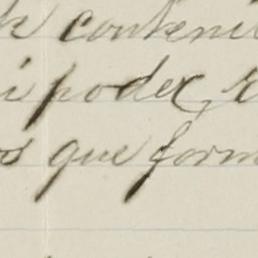 conteni
i poder, 
os que form